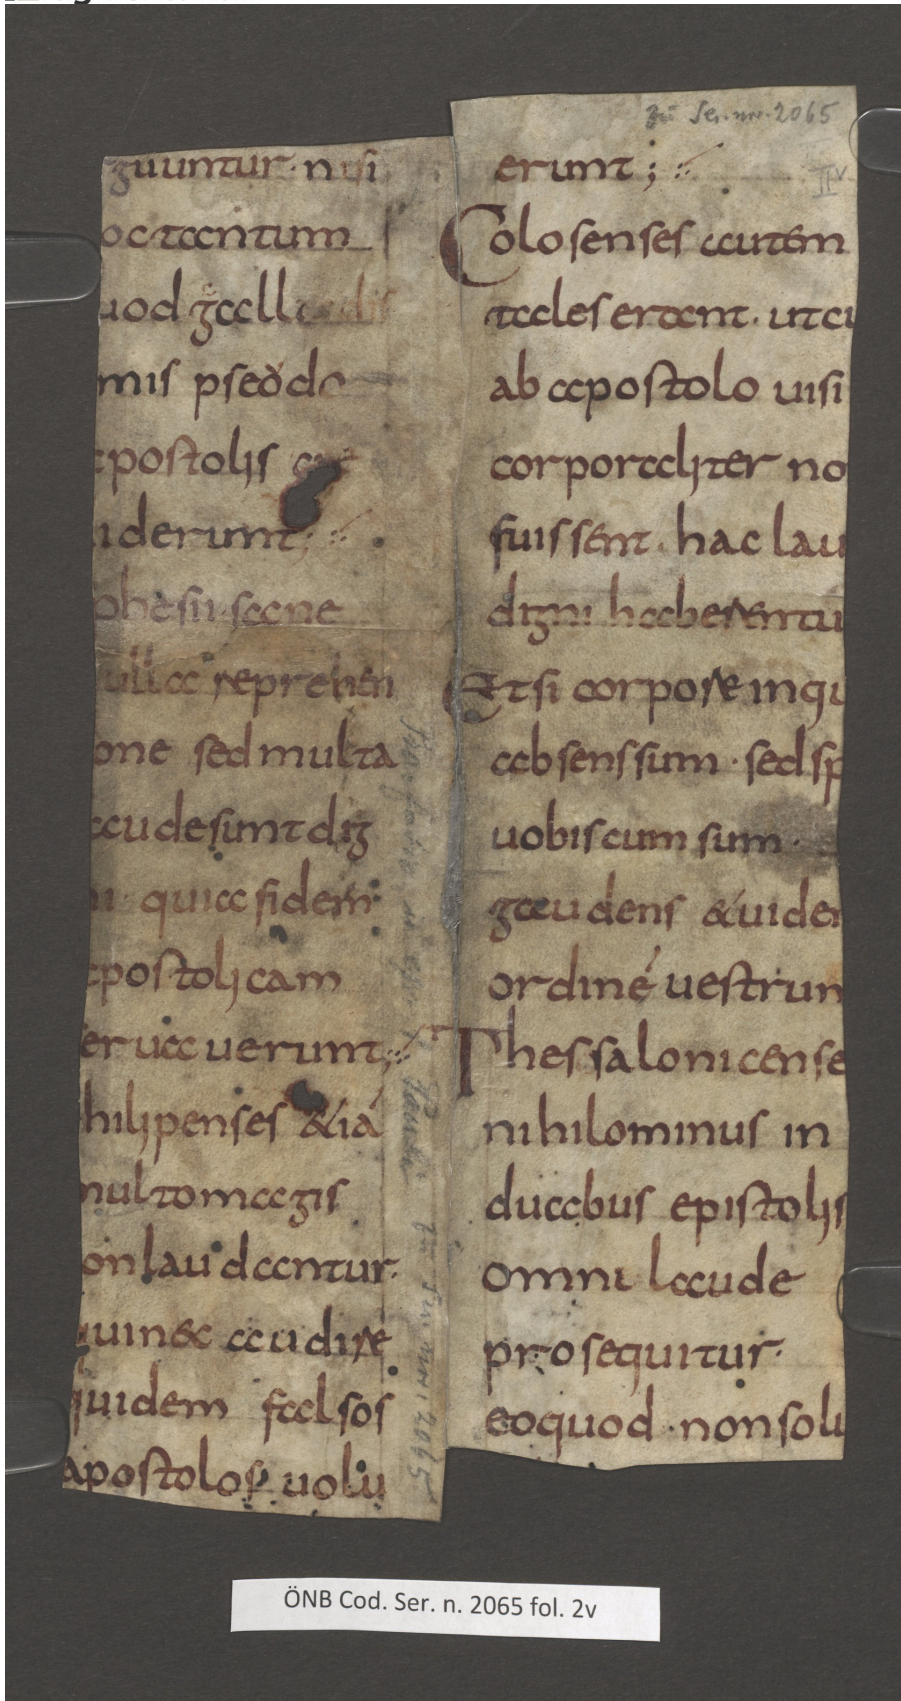 zu Ser. nr. 2065
II v
guuntur. nisi
oc tantum
uod gall
mis pseodo
postolis
iderunt;
phesii sane
ulla reprehen
one sed multa
audesunt dig
ni quia fidem
apostolicam
seruauerunt;
hilipenses &iá
multo magis
onlaudantur.
quinec audire
quidem falsos
apostolos uolu
erunt;
Colosenses autem
tales erant. utcu
ab apostolo uisi
corporaliter no
fuissent. hac lau
digni haberentu
Etsi corpore inqu
absens sum. sed sp
uobiscum sum.
gaudens &uiden
ordiné uestrum
Thessalonicense
nihilominus in
duabus epistolis
omni laude
prosequitur.
eoquod nonsolu
ÖNB Cod. Ser. n. 2065 fol. 2v